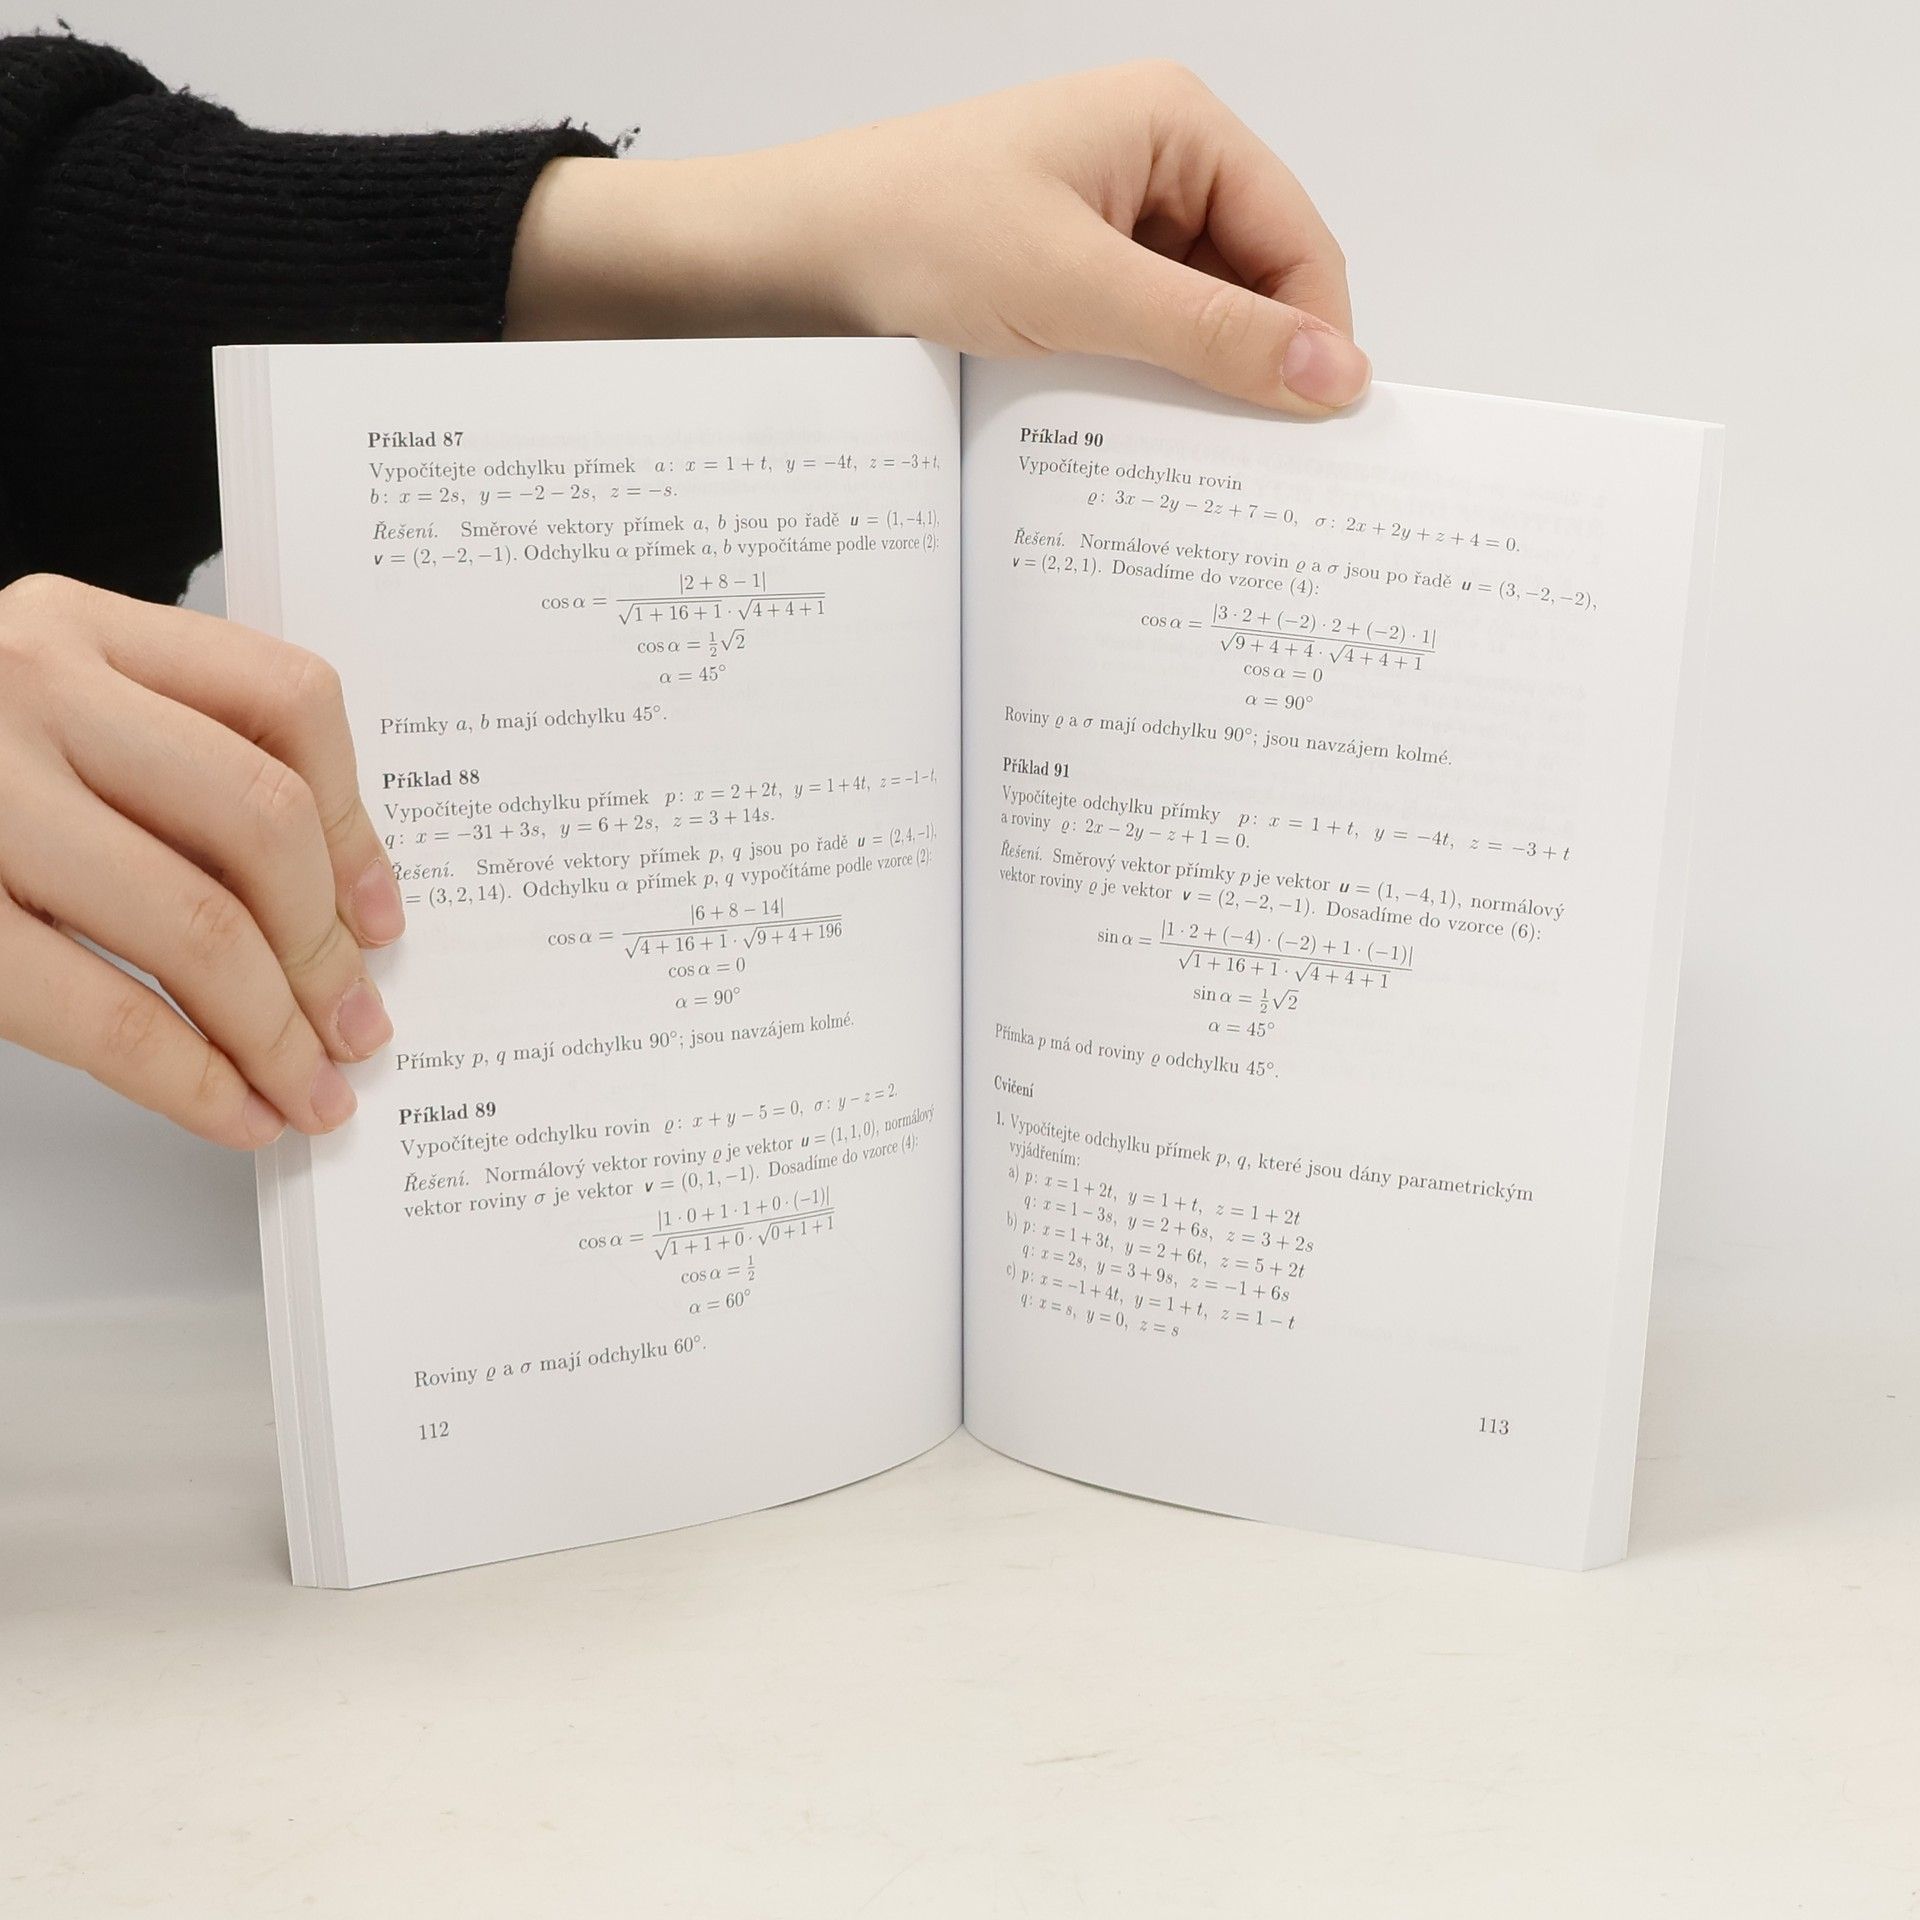 Příklad 87
Vypočítejte odchylku přímek a: x = 1 + t, y = −4t, z = −3 + t,
b: x = 2s, y = −2 − 2s, z = −s.
Řešení. Směrové vektory přímek a, b jsou po řadě u = (1, −4, 1),
v = (2, −2, −1). Odchylku α přímek a, b vypočítáme podle vzorce (2):
cos α = |2 + 8 − 1| / √1 + 16 + 1 · √4 + 4 + 1
cos α = ½√2
α = 45°
Přímky a, b mají odchylku 45°.
Příklad 88
Vypočítejte odchylku přímek p: x = 2 + 2t, y = 1 + 4t, z = −1 − t,
q: x = −31 + 3s, y = 6 + 2s, z = 3 + 14s.
Řešení. Směrové vektory přímek p, q jsou po řadě u = (2, 4, −1),
= (3, 2, 14). Odchylku α přímek p, q vypočítáme podle vzorce (2):
cos α = |6 + 8 − 14| / √4 + 16 + 1 · √9 + 4 + 196
cos α = 0
α = 90°
Přímky p, q mají odchylku 90°; jsou navzájem kolmé.
Příklad 89
Vypočítejte odchylku rovin ϱ: x + y − 5 = 0, σ: y − z = 2.
Řešení. Normálový vektor roviny ϱ je vektor u = (1, 1, 0), normálový
vektor roviny σ je vektor v = (0, 1, −1). Dosadíme do vzorce (4):
cos α = |1 · 0 + 1 · 1 + 0 · (−1)| / √1 + 1 + 0 · √0 + 1 + 1
cos α = ½
α = 60°
Roviny ϱ a σ mají odchylku 60°.
112
Příklad 90
Vypočítejte odchylku rovin
ϱ: 3x − 2y − 2z + 7 = 0, σ: 2x + 2y + z + 4 = 0.
Řešení. Normálové vektory rovin ϱ a σ jsou po řadě u = (3, −2, −2),
v = (2, 2, 1). Dosadíme do vzorce (4):
cos α = |3 · 2 + (−2) · 2 + (−2) · 1| / √9 + 4 + 4 · √4 + 4 + 1
cos α = 0
α = 90°
Roviny ϱ a σ mají odchylku 90°; jsou navzájem kolmé.
Příklad 91
Vypočítejte odchylku přímky p: x = 1 + t, y = −4t, z = −3 + t
a roviny ϱ: 2x − 2y − z + 1 = 0.
Řešení. Směrový vektor přímky p je vektor u = (1, −4, 1), normálový
vektor roviny ϱ je vektor v = (2, −2, −1). Dosadíme do vzorce (6):
sin α = |1 · 2 + (−4) · (−2) + 1 · (−1)| / √1 + 16 + 1 · √4 + 4 + 1
sin α = ½√2
α = 45°
Přímka p má od roviny ϱ odchylku 45°.
Cvičení
1. Vypočítejte odchylku přímek p, q, které jsou dány parametrickým
vyjádřením:
a) p: x = 1 + 2t, y = 1 + t, z = 1 + 2t
q: x = 1 − 3s, y = 2 + 6s, z = 3 + 2s
b) p: x = 1 + 3t, y = 2 + 6t, z = 5 + 2t
q: x = 2s, y = 3 + 9s, z = −1 + 6s
c) p: x = −1 + 4t, y = 1 + t, z = 1 − t
q: x = s, y = 0, z = s
113